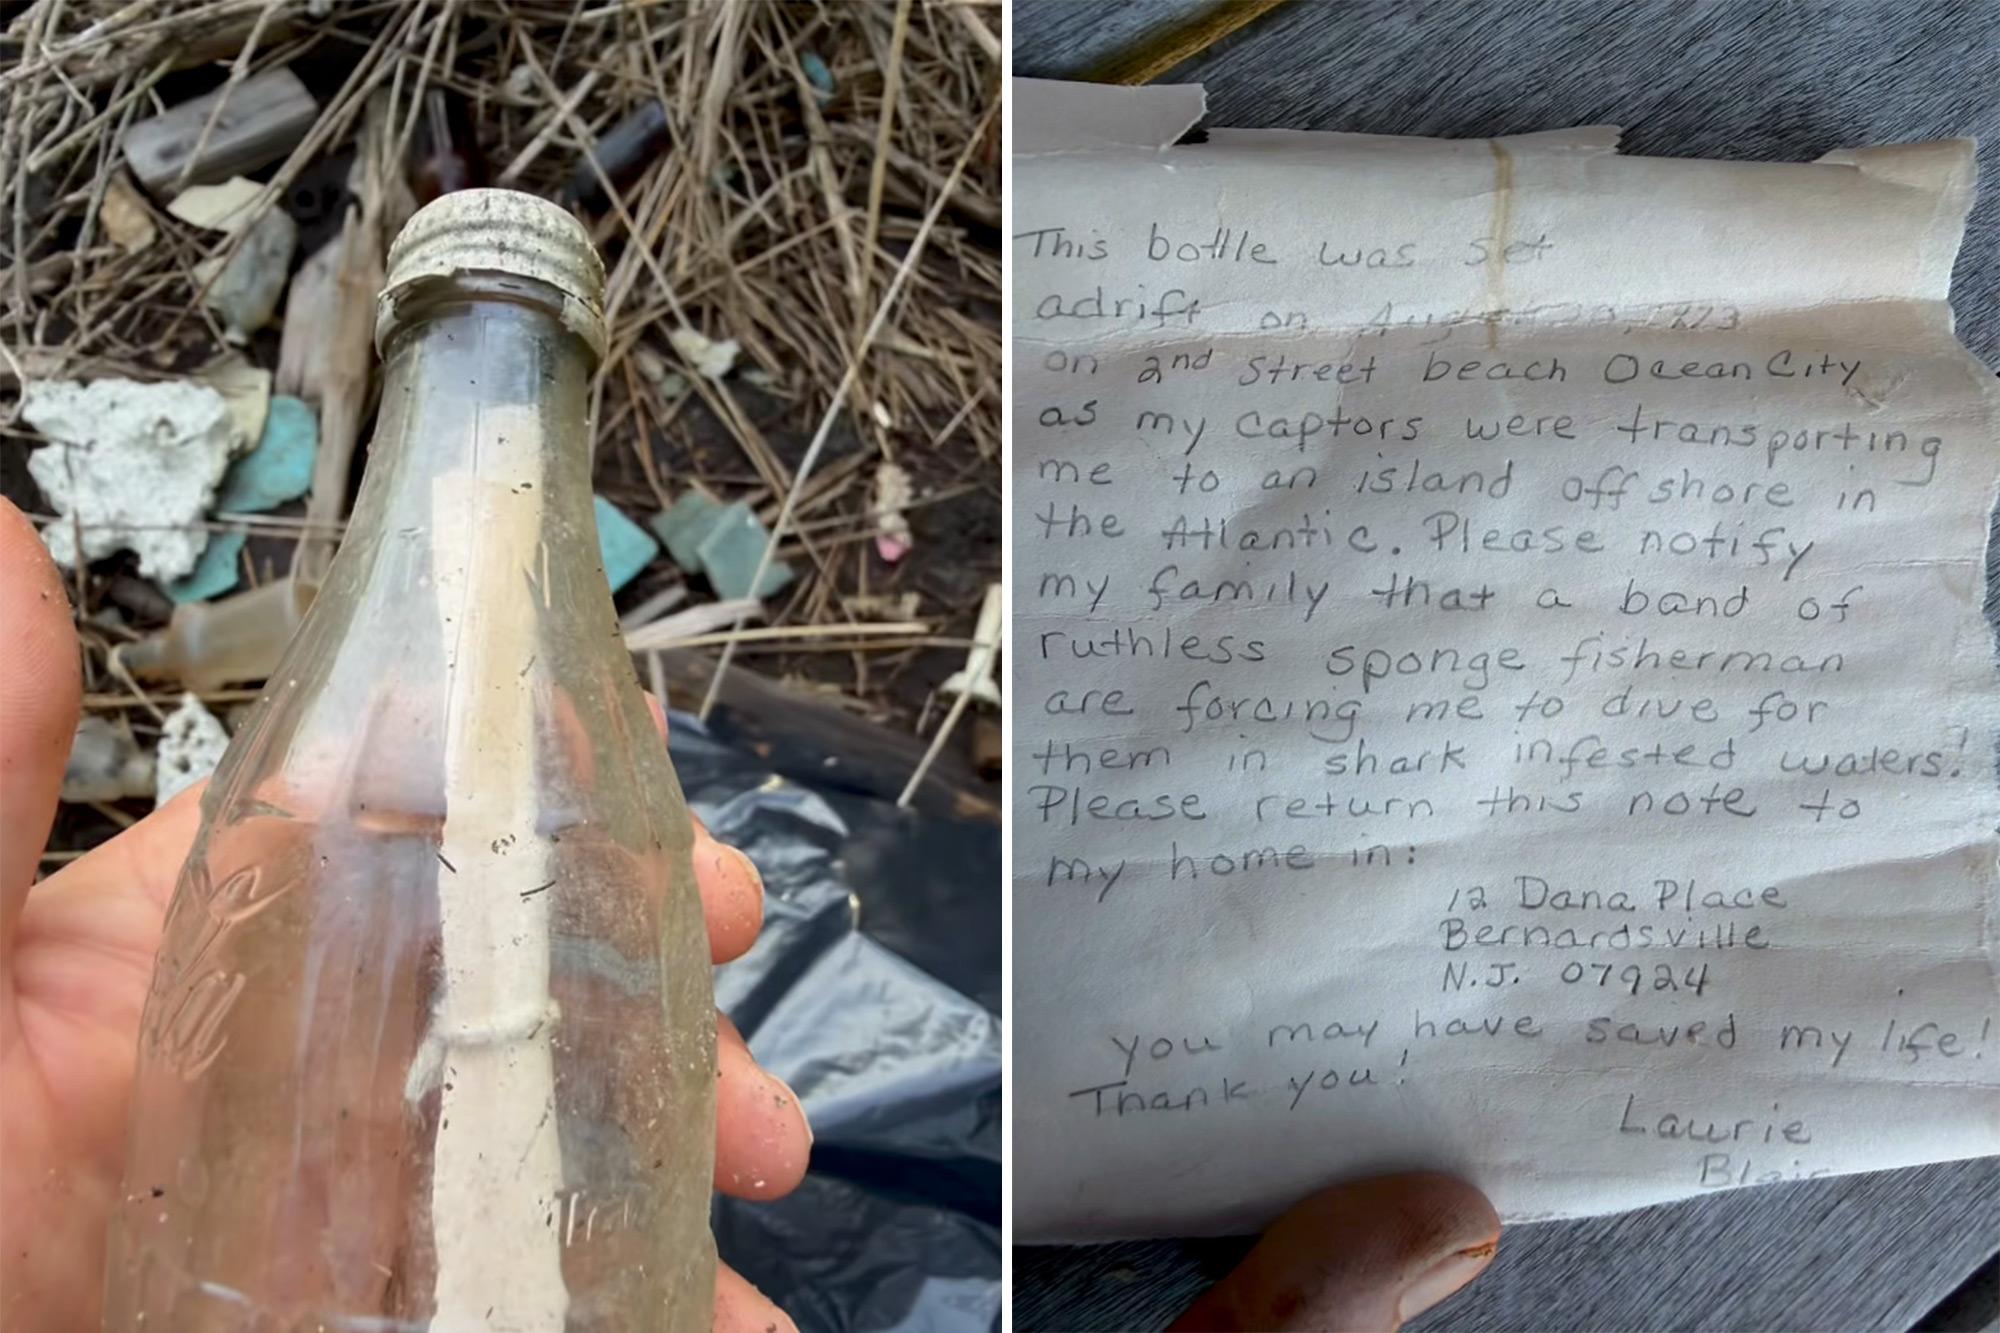 This bottle was set
adrift on August
on 2nd Street beach Ocean City
as my captors were transporting
me to an island offshore in
the Atlantic. Please notify
my family that a band of
ruthless sponge fisherman
are forcing me to dive for
them in shark infested waters!
Please return this note to
my home in:
12 Dana Place
Bernardsville
N.J. 07924
you may have saved my life!
Thank you!
Laurie
Blair